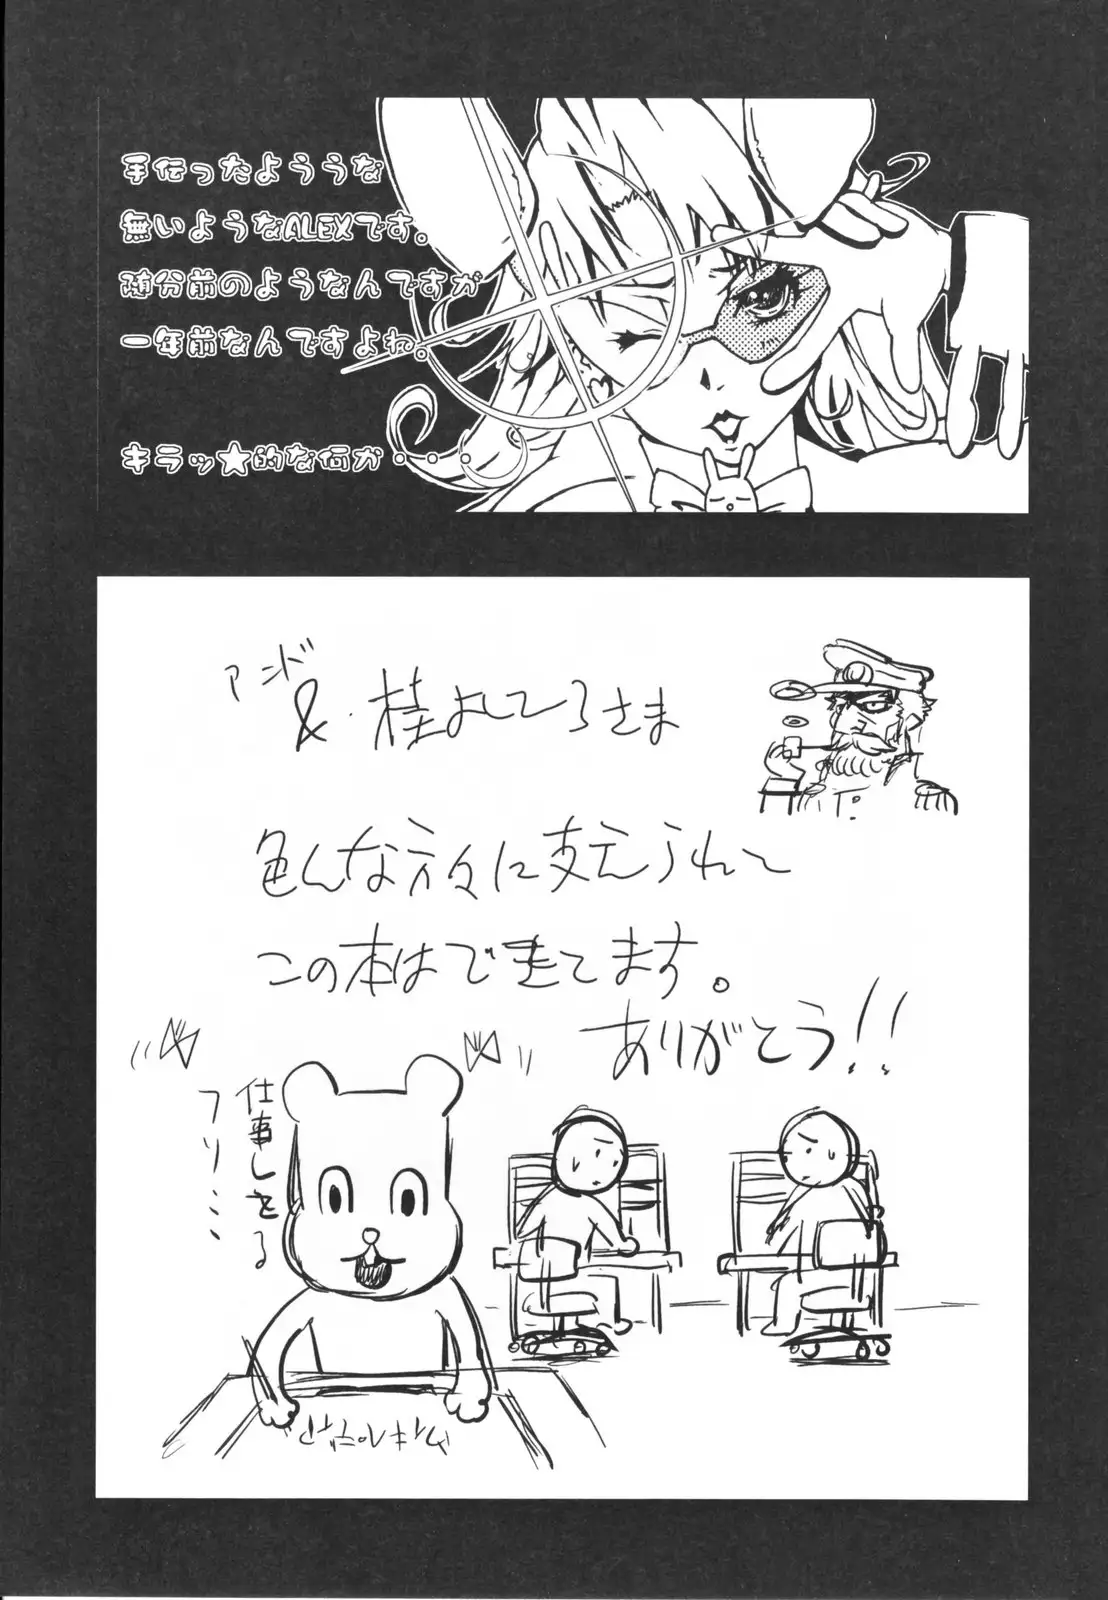 手伝ったよううな
無いようなALEXです。
随分前のようなんですが
一年前なんですよね。
キラッ★的な何か・・・
アンド
&・桂よしひろさま
色んな方々に支えられて
この本はできてます。
ありがとう!!
仕事してる
フリ